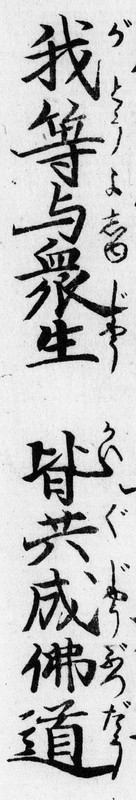 我等与衆生　皆共成佛道
がとうよしゆじやう　かいぐじやうぶつだう